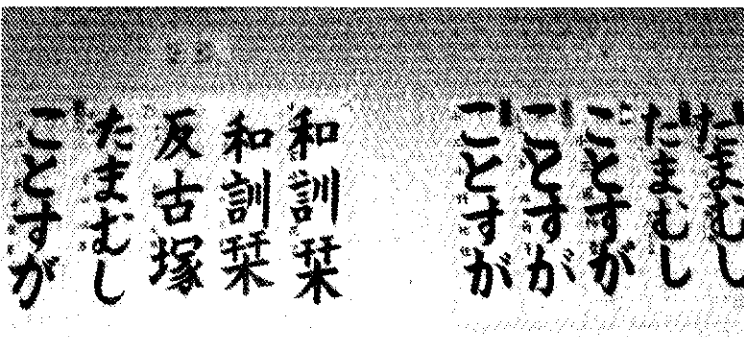 たまむし
たまむし
ことすが
ことすが
ことすが
和訓栞
和訓栞
反古塚
たまむし
ことすが